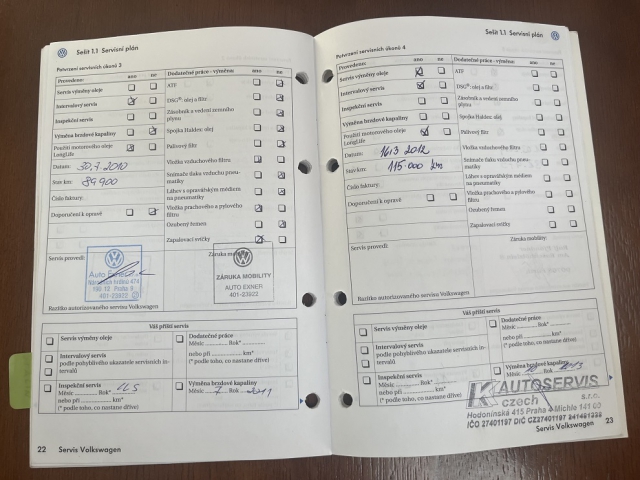 Sešit 1.1 Servisní plán
Potvrzení servisních úkonů 3
Provedeno: ano ne
Servis výměny oleje
Intervalový servis
Inspekční servis
Výměna brzdové kapaliny
Použití motorového oleje
LongLife
Datum: 30.7.2010
Stav km: 89900
Číslo faktury:
Doporučení k opravě
Dodatečné práce - výměna: ano ne
ATF
DSG®: olej a filtr
Zháněda a vedení zemního
plynu
Spojka Haldex: olej
Palivový filtr
Vložka vzduchového filtru
Snímače tlaku vzduchu pneu-
matiky
Láhev s opravářským médiem
na pneumatiky
Vložka prachového a pylového
filtru
Ozubený řemen
Zapalovací svíčky
Servis provedl:
Záruka mobility
Auto Exner
Náchodská hrádka 474
198 12 Praha 9
401-23922
ZÁRUKA MOBILITY
AUTO EXNER
401-23922
Razítko autorizovaného servisu Volkswagen
Váš příští servis
Servis výměny oleje
Intervalový servis
podle pohyblivého ukazatele servisních in-
tervalů
Inspekční servis
Měsíc Rok*
nebo při km*
(* podle toho, co nastane dříve)
Dodatečné práce
Měsíc Rok*
nebo při km*
(* podle toho, co nastane dříve)
Výměna brzdové kapaliny
Měsíc 7 Rok 2011
22 Servis Volkswagen
Sešit 1.1 Servisní plán
Potvrzení servisních úkonů 4
Provedeno: ano ne
Servis výměny oleje
Intervalový servis
Inspekční servis
Výměna brzdové kapaliny
Použití motorového oleje
LongLife
Datum: 16.3 2012
Stav km: 115 000 km
Číslo faktury:
Doporučení k opravě
Dodatečné práce - výměna: ano ne
ATF
DSG®: olej a filtr
plynu
Spojka Haldex: olej
Palivový filtr
Vložka vzduchového filtru
Snímače tlaku vzduchu pneu-
matiky
Láhev s opravářským médiem
na pneumatiky
Vložka prachového a pylového
filtru
Ozubený řemen
Zapalovací svíčky
Servis provedl:
Záruka mobility:
Razítko autorizovaného servisu Volkswagen
Váš příští servis
Servis výměny oleje
Intervalový servis
podle pohyblivého ukazatele servisních in-
tervalů
Inspekční servis
Měsíc Rok*
nebo při km*
(* podle toho, co nastane dříve)
Dodatečné práce
Měsíc Rok*
nebo při km*
(* podle toho, co nastane dříve)
Výměna brzdové kapaliny
AUTOSERVIS
czech s.r.o.
Hodonínská 415 Praha 4 Michle 141 00
IČO 27401197 DIČ CZ27401197
Servis Volkswagen 23